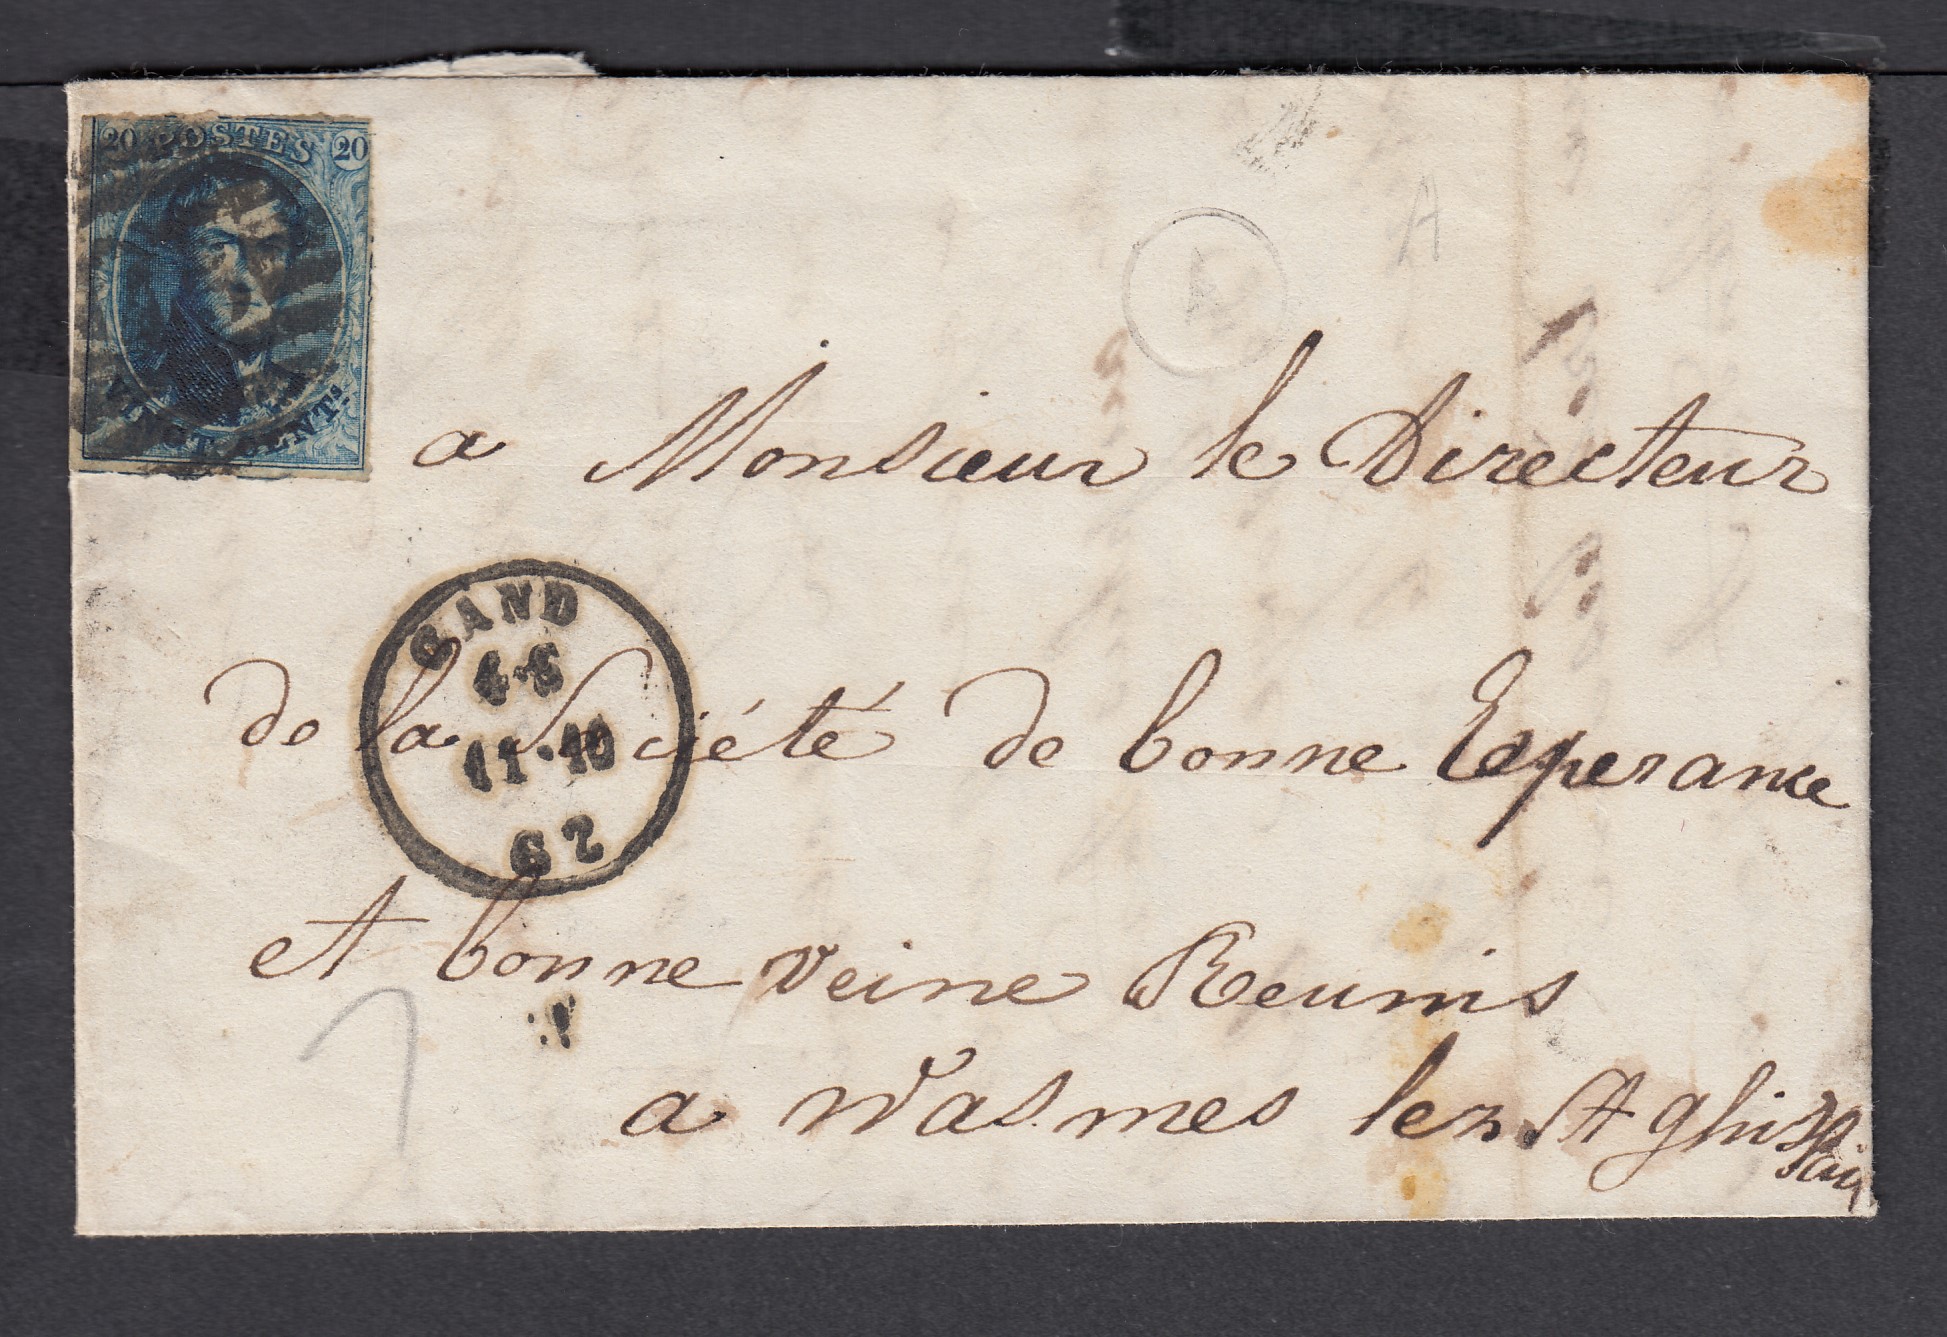 20 POSTES 20
VINGT CENTS.
A
A
a Monsieur le Directeur
GAND
4·6
11·10
62
de la Société de bonne Esperance
et bonne veine Reunis
a Wasmes lez St Ghislain